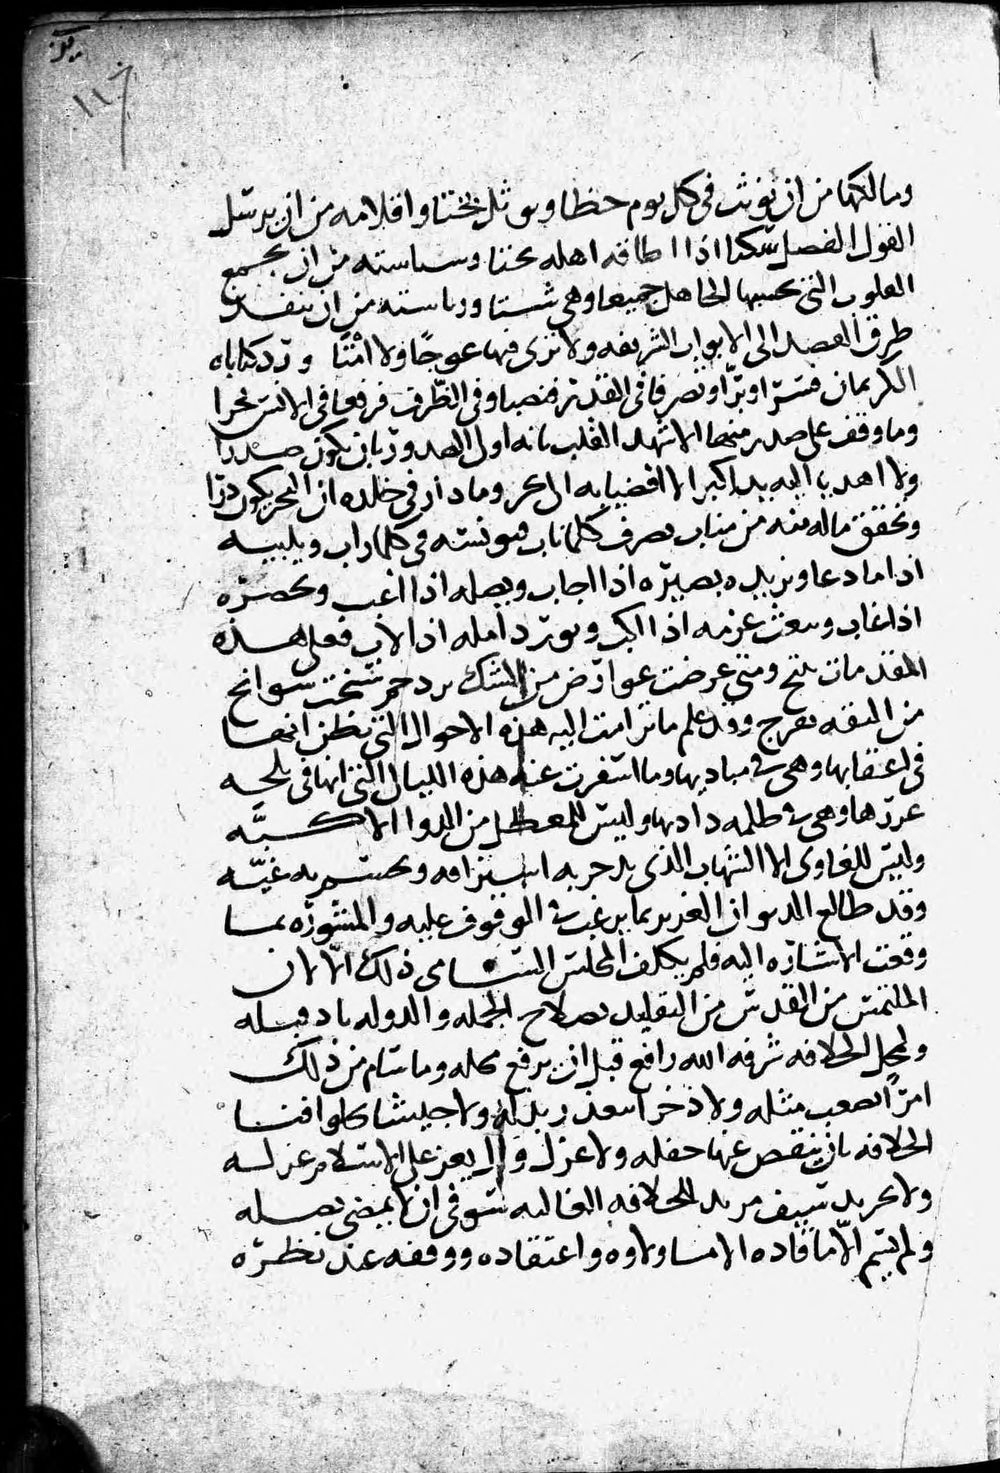 ١١٦
ومالكها من ان يؤنث في كل يوم حظا ويوثل بختا واقلامه من ان يرسل
القول الفصل سكتا اذا اطاقه اهله بحتا وسياسته من ان يجمع
القلوب التي يحسبها الجاهل جميعا وهي شتا ورياسته من ان ينفد
طرق القصد الى الابواب الشريفه ولا ترى فيها عوجا ولا امتا وورد كتاباه
الكريمان فسرا وبرا وتصرفا في القدر فنصبا وفي الظرف فرفعا في الانس بحرا
وما وقف على صدر منهما الا شهد القلب بانه اول الصدور بان يكون صدرا
ولا اهديا اليه يدا كبرا الا افضيا به الى بحر وما دار في خلده ان البحر يكون درا
وتحقق ماله منه من مناب يصرف كلما ناب ويؤنسه في كلما راب ويلبيه
اذا ما دعا ويزيده بصيره اذا اجاب ويصله اذا اغب ويحضره
اذا غاب ويبعث عزمه اذا اكب ويورد امله اذا لاب فعلى هذه
المقدمات ينتج ومتى عرضت عوارض من الشك يردحم سنحت سوانح
من الثقه تفرج وقد علم ما ترامت اليه هذه الاحوال التي نظن انها
في اعقابها وهي في مباديها وما اسفرت عنه هذه الليال التي انها في بلجه
غررها وهي في ظلمه دآديها وليس للمعضل من الدوا الا كيّه
وليس للغاوى الا الشهاب الذي يدحر به استراقه ويحسم به غيّه
وقد طالع الديوان العزيز بما يرغب في الوقوف عليه والمشوره بما
وقعت الاشاره اليه فلم يكلف المجلس السامى ذلك الا لان
الملتمس من المقدس من التقليد بصلاح الجمله والدوله باد قبله
ولمحل الخلافه شرفه الله رافع قبل ان يرفع محله وما سام من ذلك
امرا يصعب مثله ولا ذخرا يتعذر بذله ولا جيشا كلوا فنا
الخلافه بان ينقص عنها حفله ولا عزل وال يعز على الاسلام عزله
ولا تجريد سيف مريد للخلافه الغاليه سوفى ان يمضي نصله
ولم يسم الا ما قاده الامساولاوه واعتقاده ووقفه عند نظره